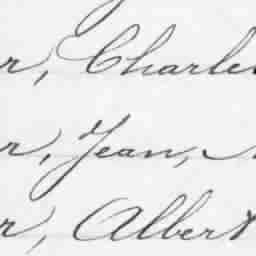 r, Charles
r, Jean,
r, Albert